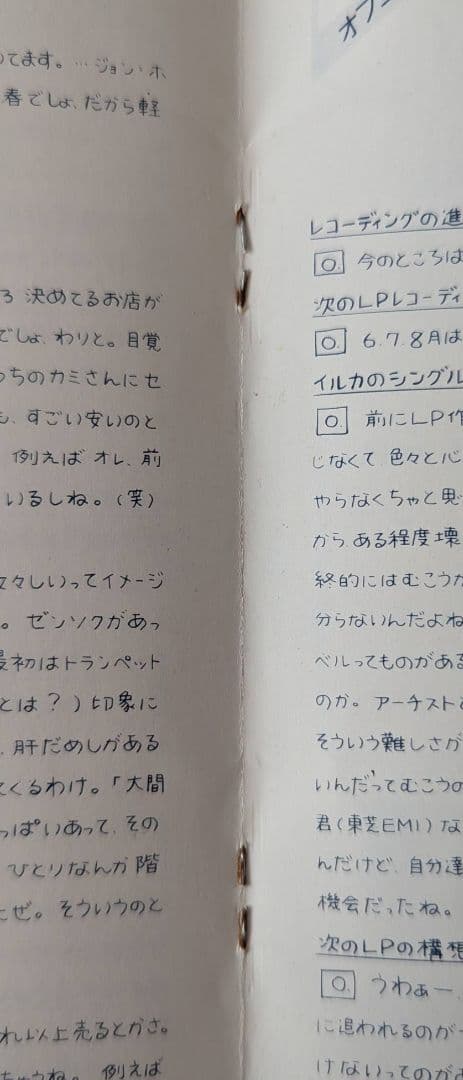 てます。…ジョン・ホ
春でしょ、だから軽
決めてるお店が
でしょ、わりと。目覚
っちのカミさんにセ
も、すごい安いのと
例えば オレ、前
いるしね。(笑)
女々しいってイメージ
。ゼンソクがあっ
最初はトランペット
とは?)印象に
、肝だめしがある
てくるわけ。「大間
っぱいあって、その
ひとりなんか 階
たぜ。そういうのと
れ以上売るとかさ。
ちゃうね。例えば
オフ
レコーディングの進
O. 今のところは
次のLPレコーディ
O. 6.7.8月は
イルカのシングル
O. 前にLP作
じなくて、色々と心
やらなくちゃと思
から、ある程度壊
終的にはむこうが
分らないんだよね
ベルってものがある
のか。アーチストと
そういう難しさが
いんだってむこうの
君(東芝EMI)な
んだけど、自分達
機会だったね。
次のLPの構想
O. うわぁー、
に追われるのが
けないってのが